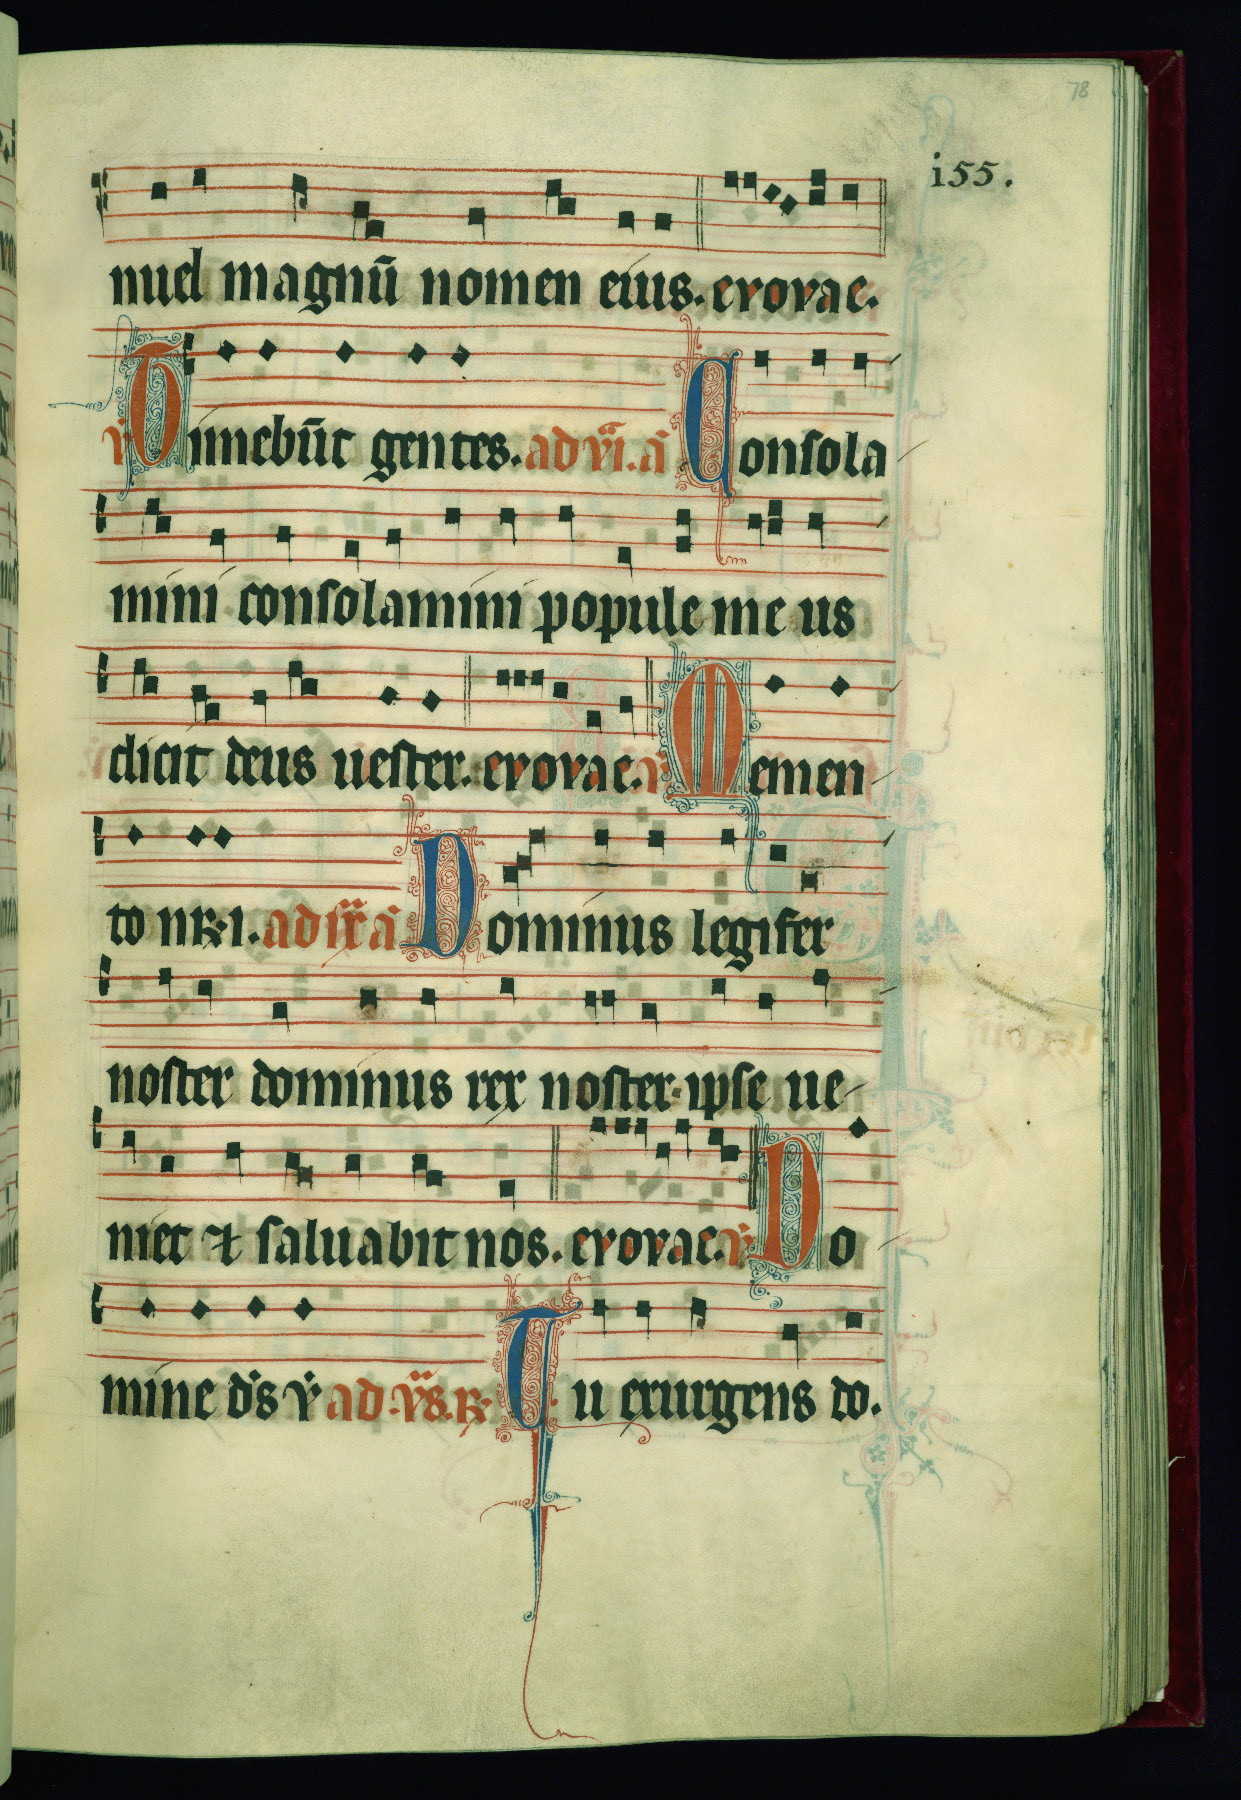 78
i55.
nuel magnū nomen eius. evovae.
v̄ Timebūt gentes. ad vi. a Consola
mini consolamini popule me us
dicit deus uester. evovae. v̄ Memen
to nr̄i. ad ix a Dominus legifer
noster dominus rex noster ipse ue
niet ⁊ saluabit nos. evovae. v̄ Do
mine ds v̄ ad v̄s. R Tu exurgens do.